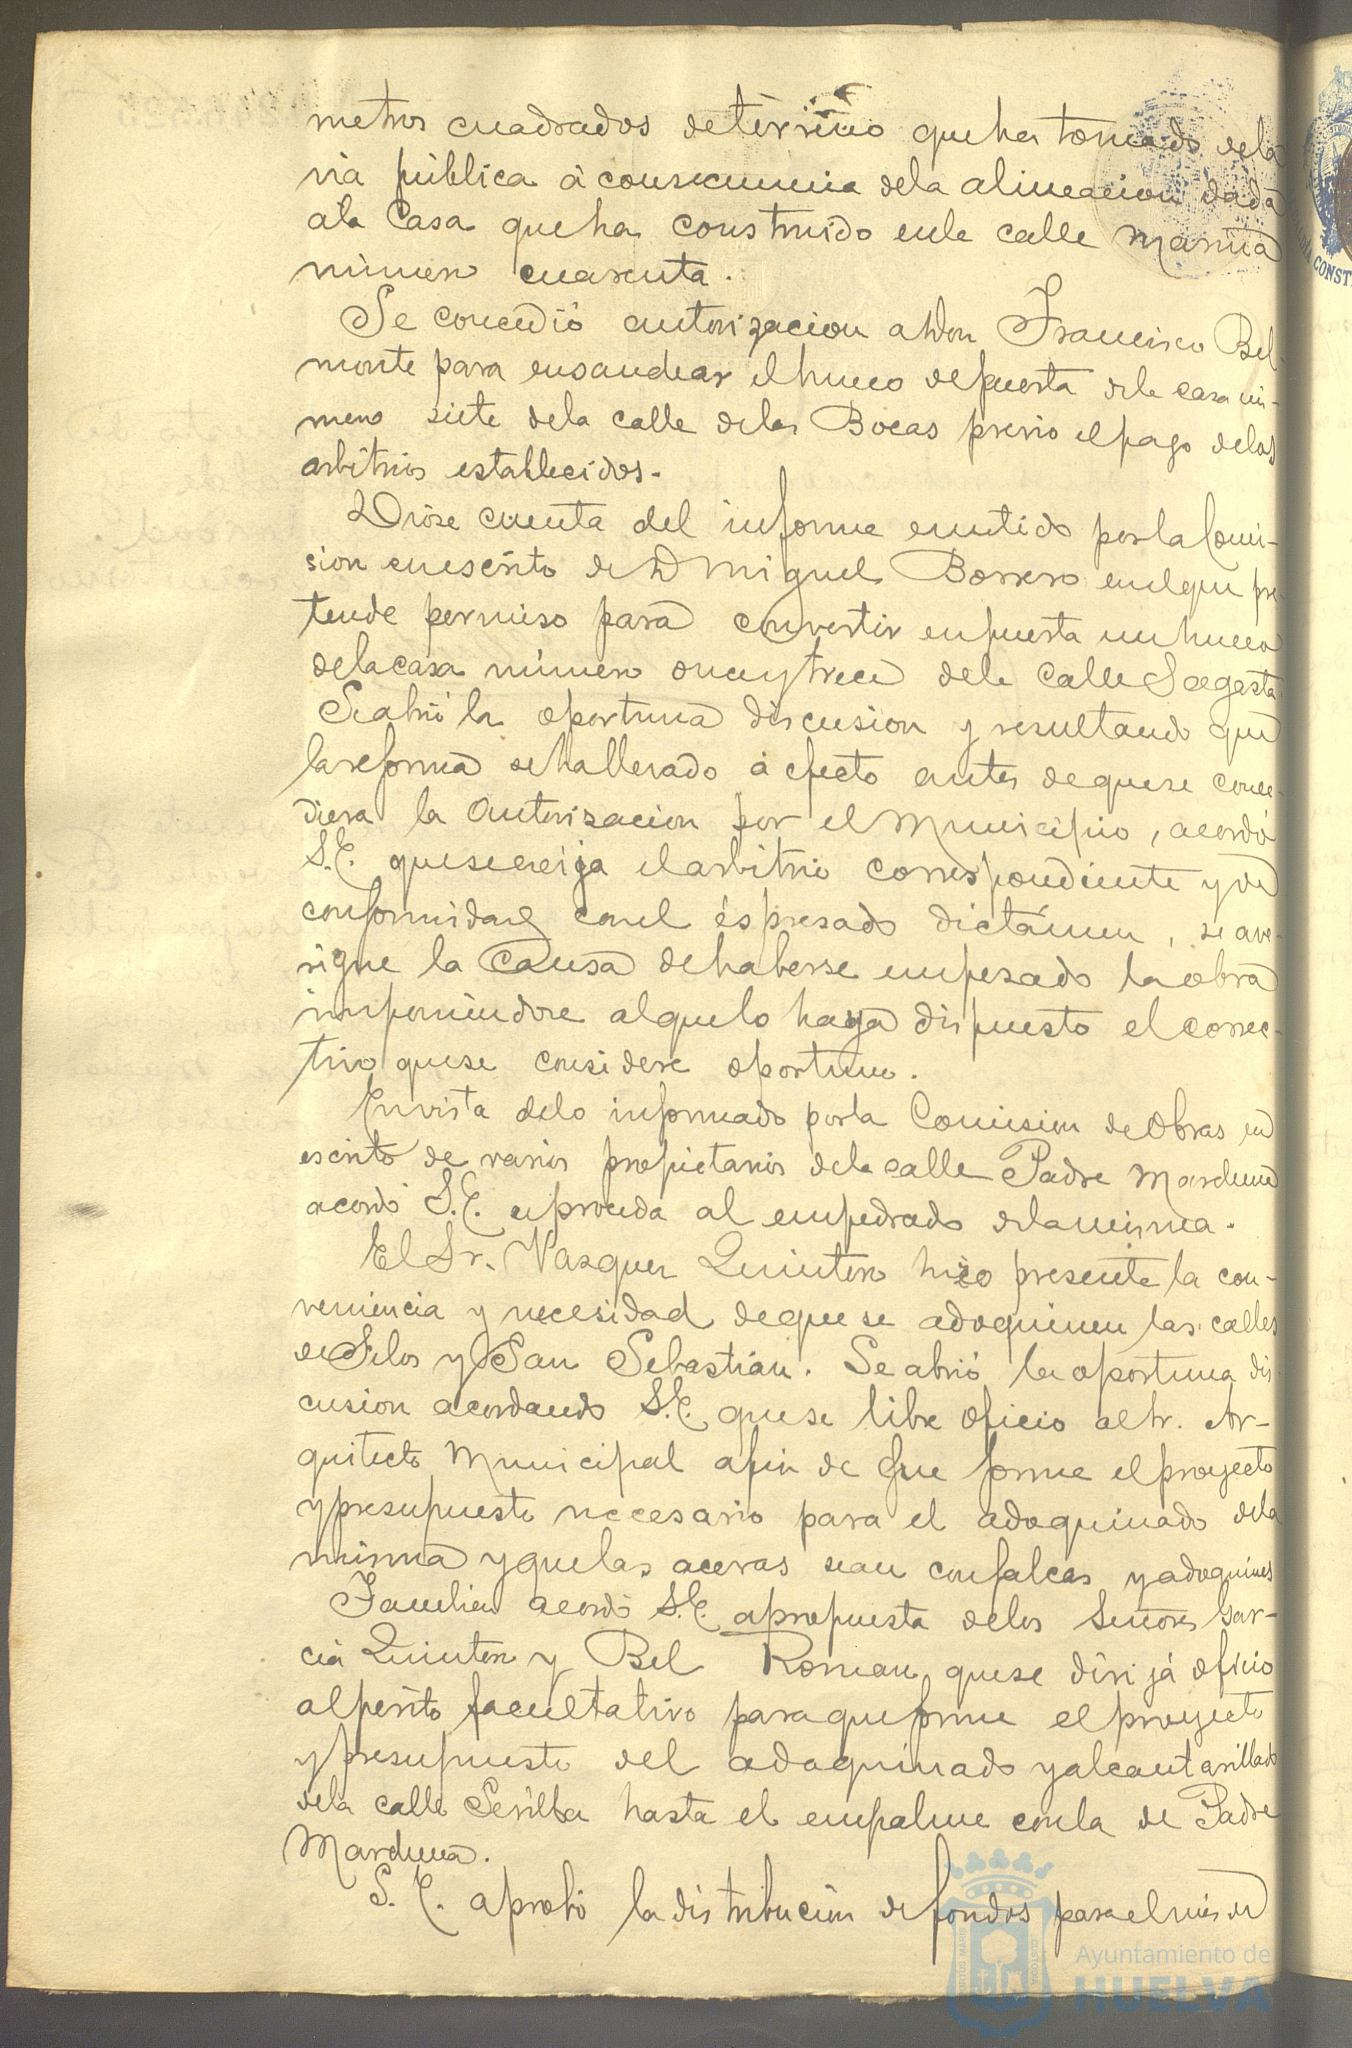 metros cuadrados de terreno que ha tomado de la
via pública á consecuencia de la alineacion dada
a la Casa que ha construido en la calle Marina
número cuarenta.
Se concedió autorizacion a Don Francisco Bel-
monte para ensanchar el hueco de puerta de la casa nú-
mero siete de la calle de las Bocas previo el pago de los
arbitrios establecidos.
Dióse cuenta del informe emitido por la Comi-
sion en escrito de D Miguel Borrero en el que pre
tende permiso para convertir en puerta un hueco
de la casa número once y trece de la Calle Sagasta
Se abrió la oportuna discusion y resultando que
la reforma se ha llevado á efecto antes de que se conce-
diera la autorizacion por el Municipio, acordó
S.E. que se exija el arbitrio correspondiente y de
conformidad con el éspresado dictámen, se ave-
rigue la Causa de haberse empesado la obra
imponiendose al que lo haya dispuesto el correc-
tivo que se considere oportuno.
En vista de lo informado por la Comision de Obras en
escrito de varios propietarios de la calle Padre Marchena
acordó S.E. se proceda al empedrado de la misma.
El Sr. Vasquez Quintero hizo presente la con-
veniencia y necesidad de que se adoquinen las calles
de Silos y San Sebastián. Se abrió la oportuna dis
cusion acordando S.E. que se libre oficio al Sr. Ar-
quitecto Municipal a fin de que forme el proyecto
y presupuesto necesario para el adoquinado de la
misma y que las aceras sean con falcas y adoquines
Tambien acordó S.E. a propuesta de los Señores Gar-
cia Quintero y Bel Roman, que se dirijá oficio
al périto facultativo para que forme el proyecto
y presupuesto del adoquinado y alcantarillado
de la calle Sevilla hasta el empalme con la de Padre
Marchena.
S. E. aprobó la distribución de fondos para el mes de
Ayuntamiento de
HUELVA